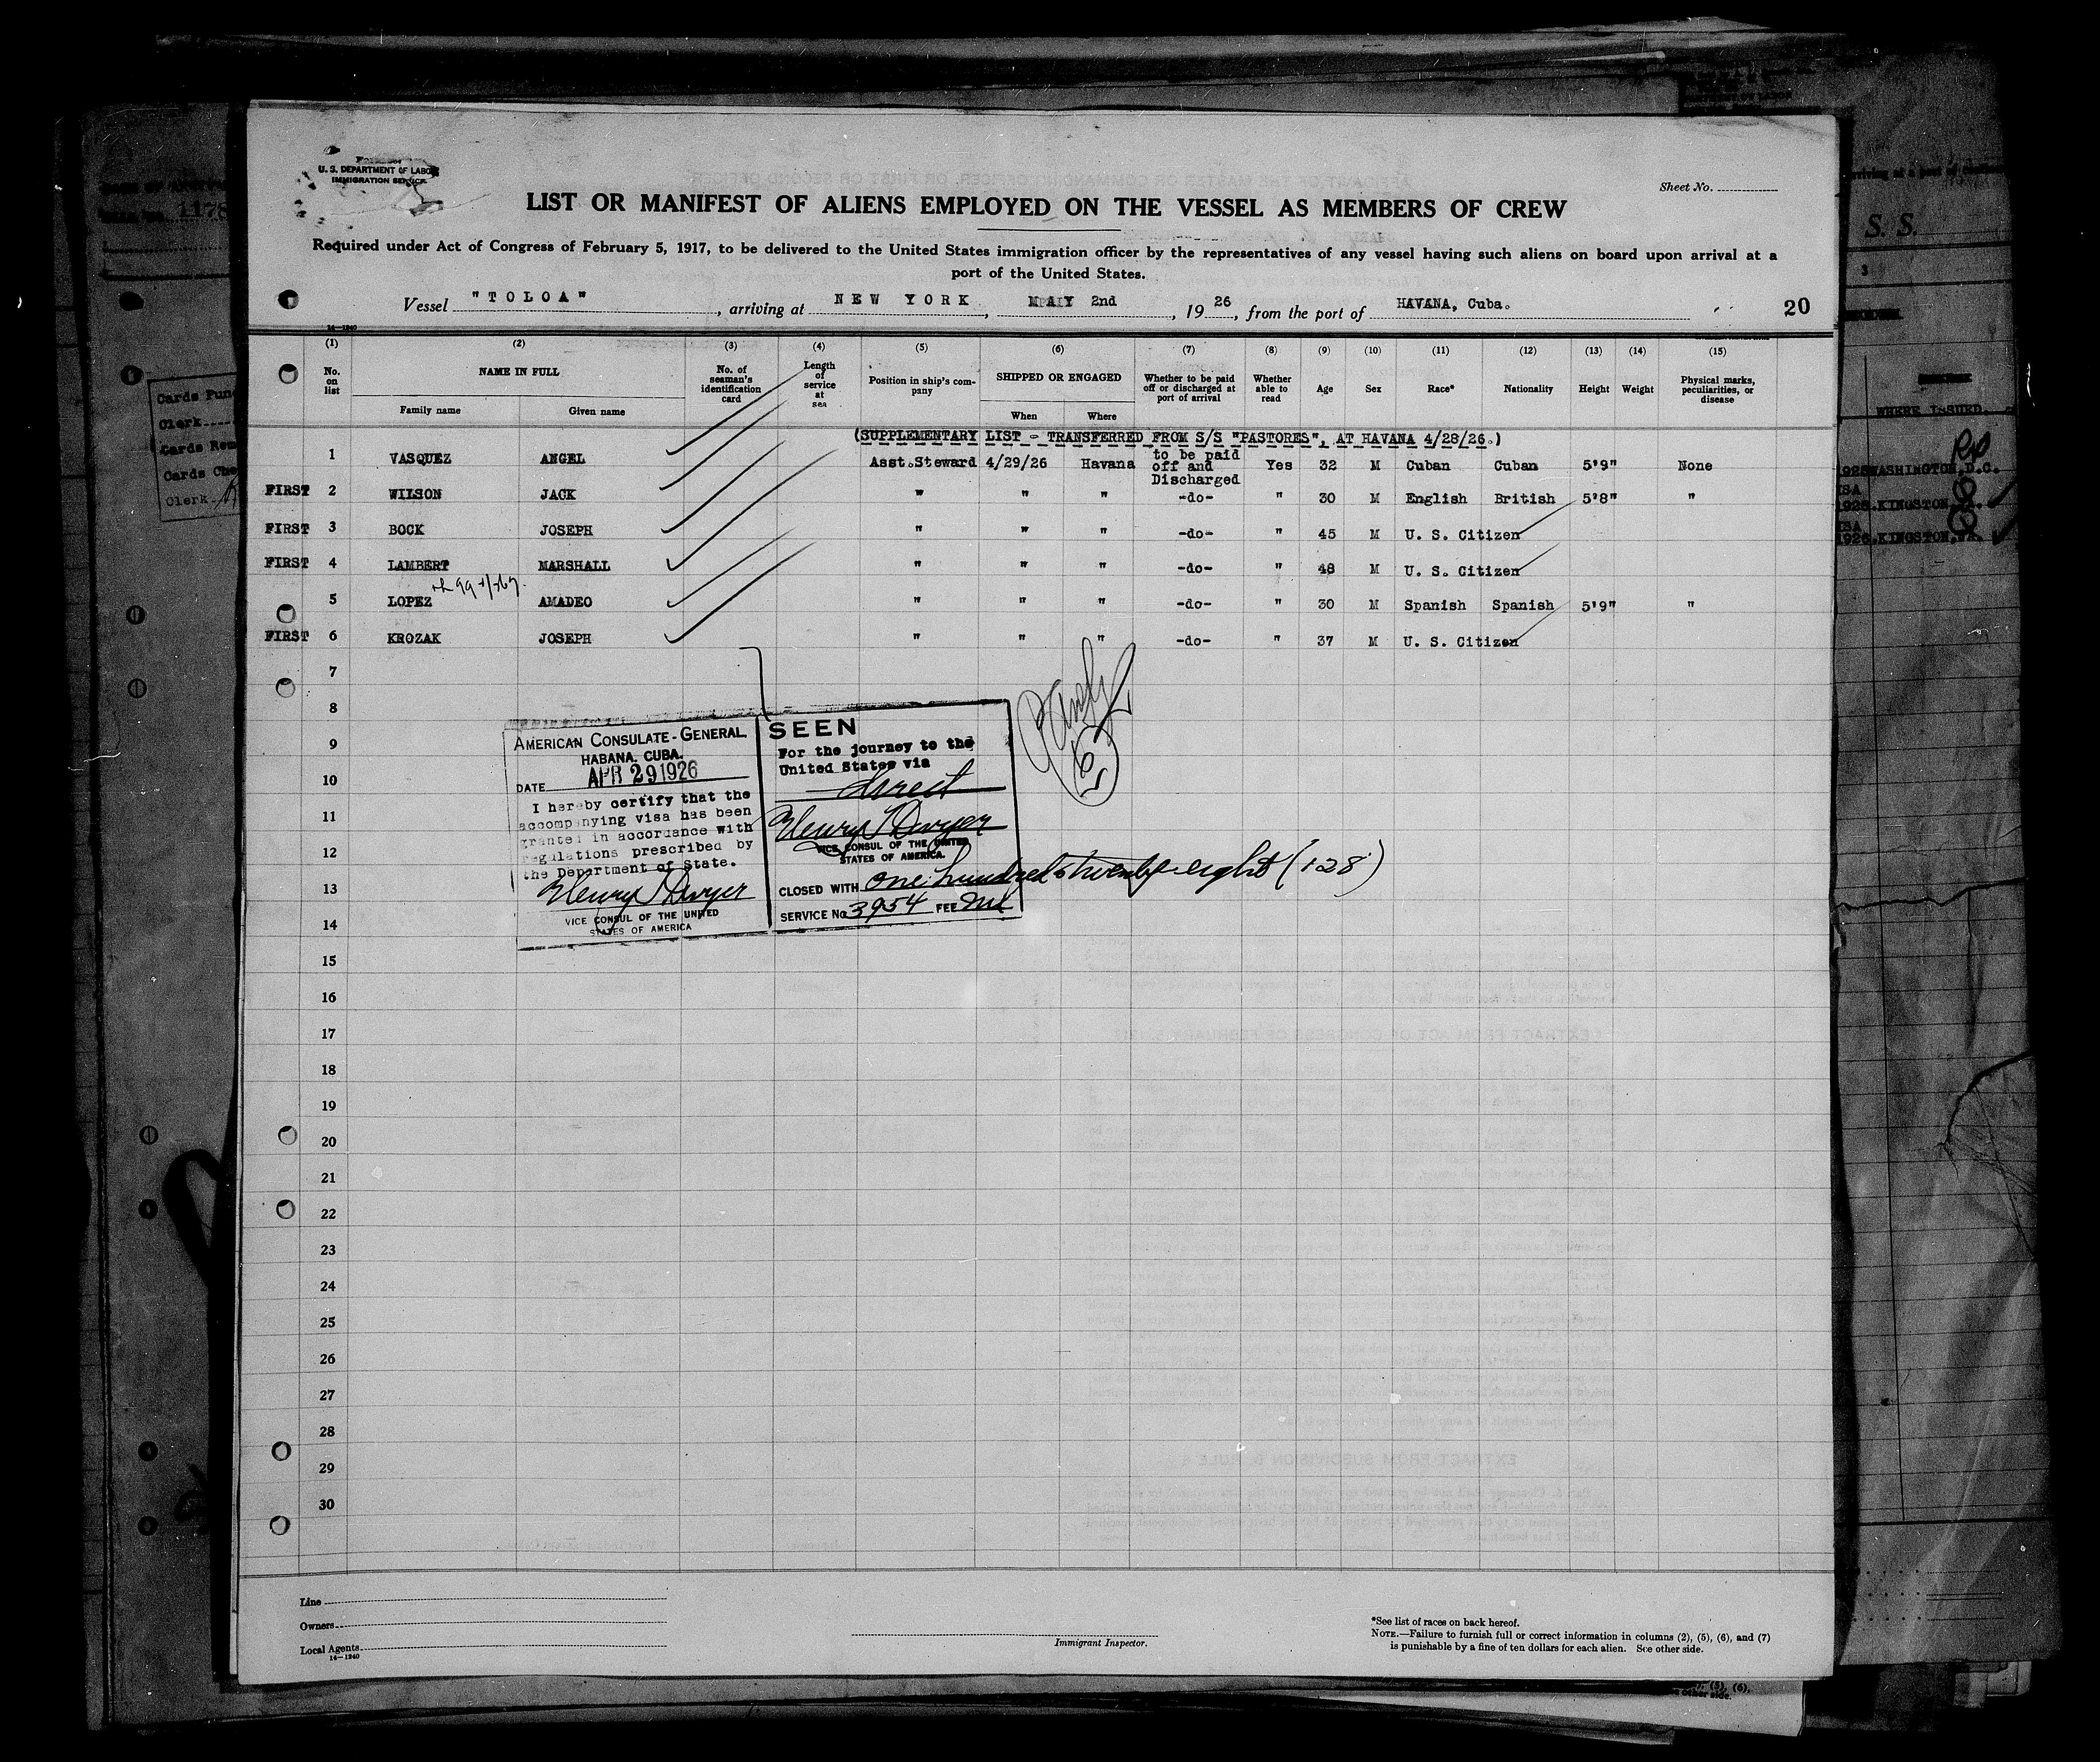 U. S. DEPARTMENT OF LABOR
IMMIGRATION SERVICE
Sheet No.
LIST OR MANIFEST OF ALIENS EMPLOYED ON THE VESSEL AS MEMBERS OF CREW
Required under Act of Congress of February 5, 1917, to be delivered to the United States immigration officer by the representatives of any vessel having such aliens on board upon arrival at a
port of the United States.
Vessel "TOLOA", arriving at NEW YORK, MAY 2nd, 1926, from the port of HAVANA, Cuba. 20
14-1240
(1) (2) (3) (4) (5) (6) (7) (8) (9) (10) (11) (12) (13) (14) (15)
No. on list NAME IN FULL No. of seaman's identification card Length of service at sea Position in ship's company SHIPPED OR ENGAGED Whether to be paid off or discharged at port of arrival Whether able to read Age Sex Race* Nationality Height Weight Physical marks, peculiarities, or disease
Family name Given name When Where
(SUPPLEMENTARY LIST - TRANSFERRED FROM S/S "PASTORES", AT HAVANA 4/28/26.)
1 VASQUEZ ANGEL Asst.Steward 4/29/26 Havana to be paid off and Discharged Yes 32 M Cuban Cuban 5'9" None
FIRST 2 WILSON JACK " " " -do- " 30 M English British 5'8" "
FIRST 3 BOCK JOSEPH " " " -do- " 45 M U. S. Citizen
FIRST 4 LAMBERT MARSHALL " " " -do- " 48 M U. S. Citizen
5 LOPEZ AMADEO " " " -do- " 30 M Spanish Spanish 5'9" "
FIRST 6 KROZAK JOSEPH " " " -do- " 37 M U. S. Citizen
7
8
9
10
11
12
13
14
15
16
17
18
19
20
21
22
23
24
25
26
27
28
29
30
AMERICAN CONSULATE-GENERAL
HABANA. CUBA.
DATE APR 29 1926
I hereby certify that the
accompanying visa has been
granted in accordance with
regulations prescribed by
the Department of State.
Henry T Dwyer
VICE CONSUL OF THE UNITED
STATES OF AMERICA
SEEN
For the journey to the
United States via
direct
Henry T Dwyer
VICE CONSUL OF THE UNITED
STATES OF AMERICA.
CLOSED WITH one hundred & twenty-eight (128)
SERVICE No. 3954 FEE Nil
Line
Owners
Local Agents
14-1240
Immigrant Inspector.
*See list of races on back hereof.
NOTE.—Failure to furnish full or correct information in columns (2), (5), (6), and (7)
is punishable by a fine of ten dollars for each alien. See other side.
1178
Cards Pun
Clerk
Cards Rem
Cards Che
Clerk
S. S.
3
WHERE ISSUED.
WASHINGTON,D.C.
1926.KINGSTON,JA.
1926.KINGSTON,JA.
(5), (6),
other side.